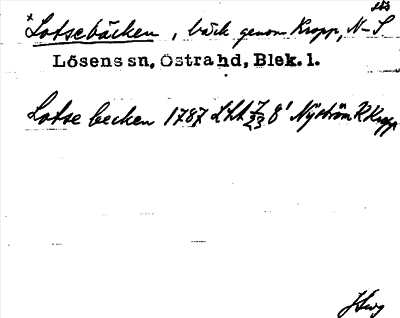 *Lotsebäcken, bäck genom Kropp, N–S.
Lösens sn, Östra hd, Blek. l.
Lotse becken 1787 LHA 7/23 8' Nyström K Kropp